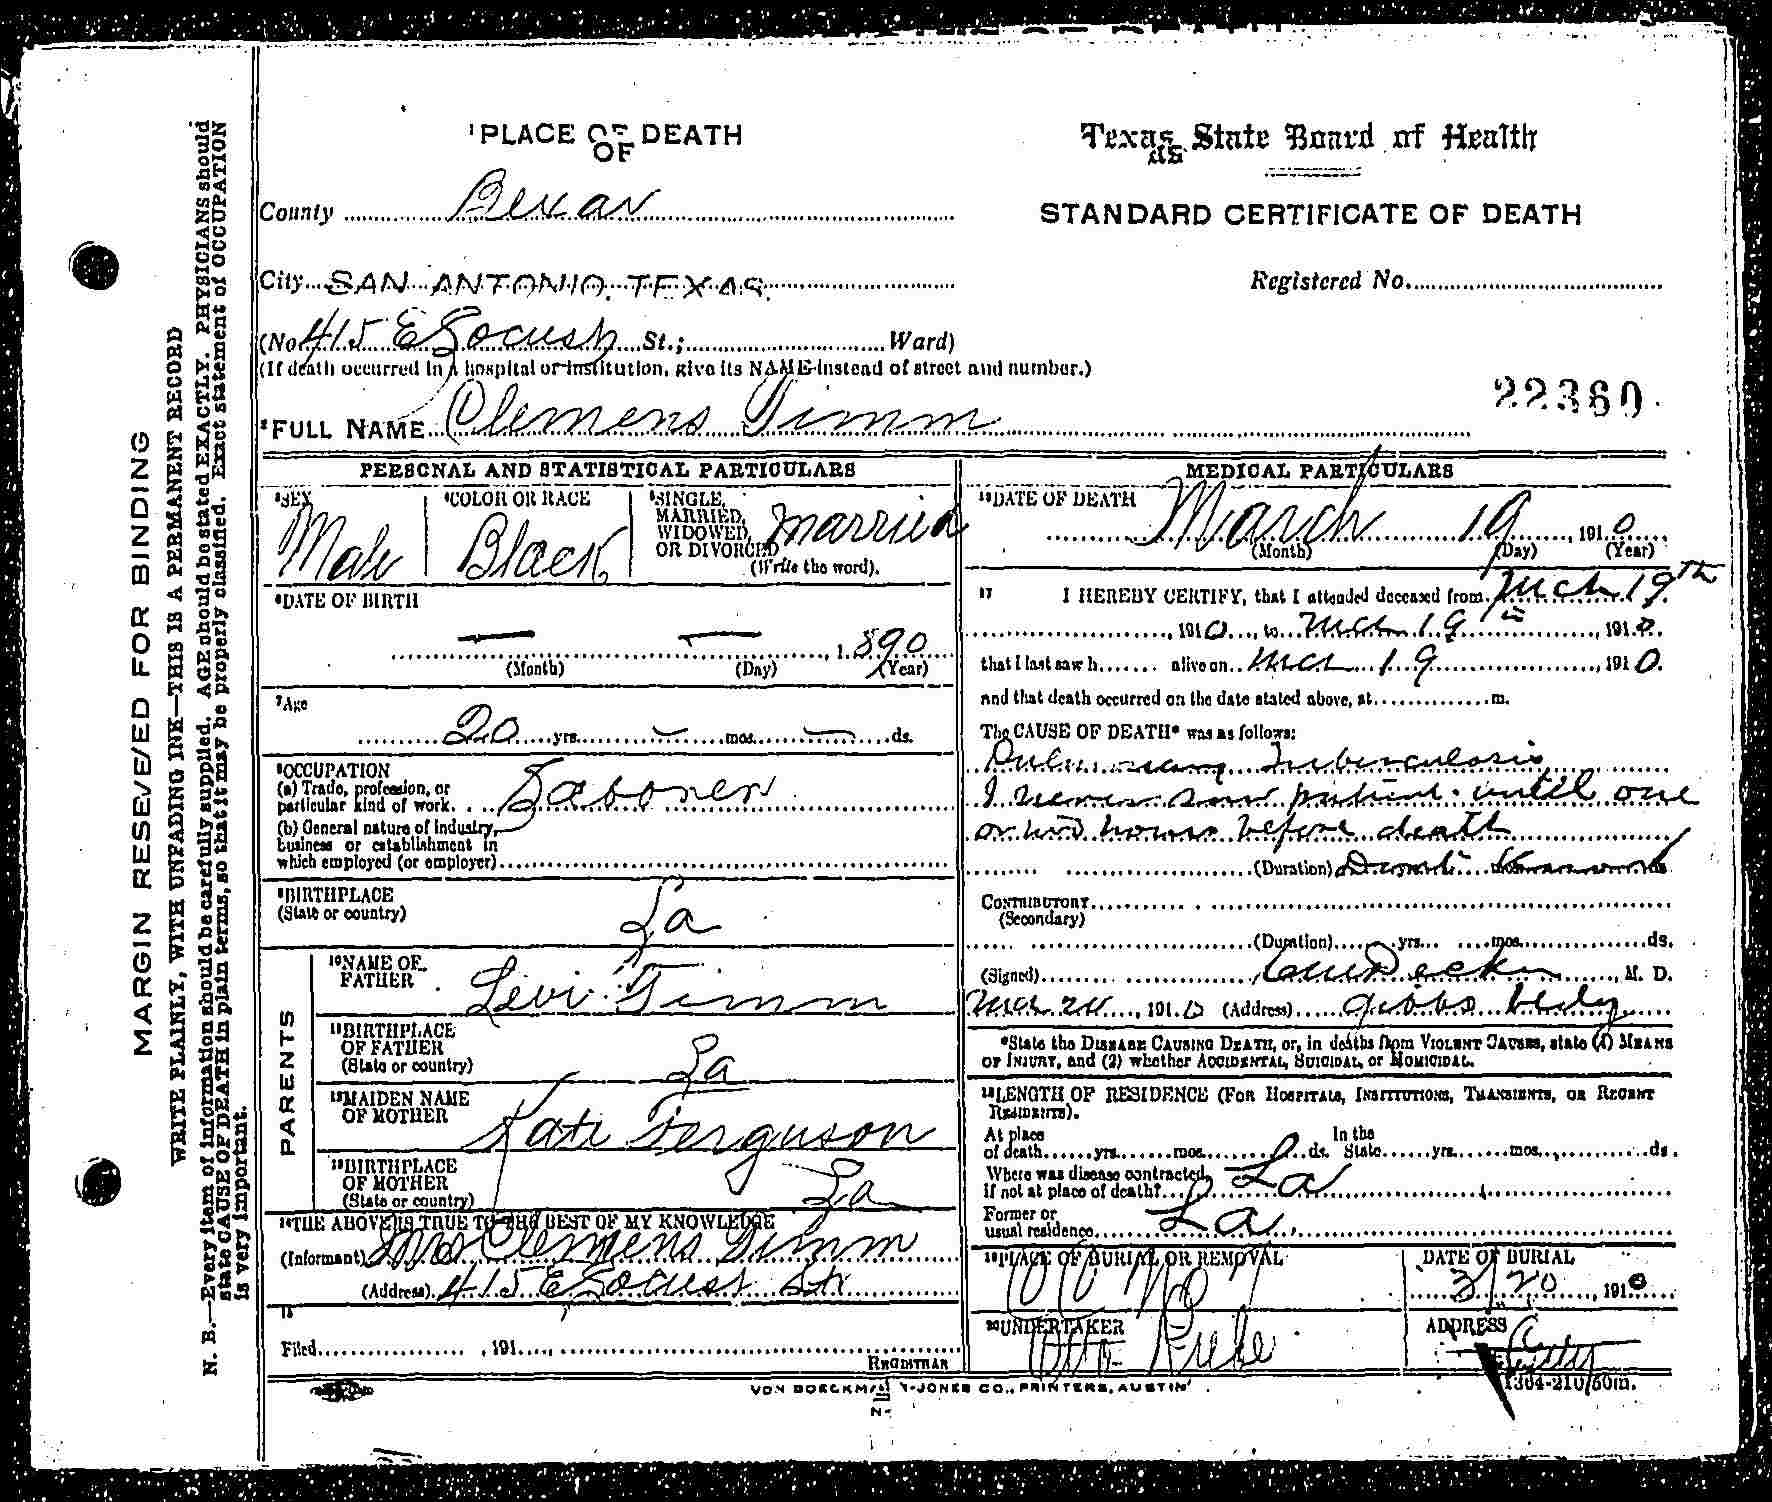 MARGIN RESEVED FOR BINDING
WRITE PLAINLY, WITH UNFADING INK—THIS IS A PERMANENT RECORD
N. B.—Every item of information should be carefully supplied. AGE should be stated EXACTLY. PHYSICIANS should
state CAUSE OF DEATH in plain terms, so that it may be properly classified. Exact statement of OCCUPATION
is very important.
1 PLACE OF DEATH
OF
Texas State Board of Health
as
County Bexar
STANDARD CERTIFICATE OF DEATH
City SAN ANTONIO, TEXAS.
Registered No.
(No. 415 E Locust St.; Ward)
(If death occurred in a hospital or institution, give its NAME instead of street and number.)
22360
2 FULL NAME Clemens Timm
PERSONAL AND STATISTICAL PARTICULARS
3 SEX
Male
4 COLOR OR RACE
Black
5 SINGLE,
MARRIED,
WIDOWED,
OR DIVORCED
Married
(Write the word).
6 DATE OF BIRTH
— — , 1 890
(Month) (Day) (Year)
7 Age
20 yrs. — mos. — ds.
8 OCCUPATION
(a) Trade, profession, or
particular kind of work. Laborer
(b) General nature of industry,
business or establishment in
which employed (or employer)
9 BIRTHPLACE
(State or country)
La
PARENTS
10 NAME OF
FATHER
Levi Timm
11 BIRTHPLACE
OF FATHER
(State or country)
La
12 MAIDEN NAME
OF MOTHER
Kate Ferguson
13 BIRTHPLACE
OF MOTHER
(State or country)
La
14 THE ABOVE IS TRUE TO THE BEST OF MY KNOWLEDGE
(Informant) Mrs Clemens Timm
(Address) 415 E Locust Str
15
Filed , 191
REGISTRAR
MEDICAL PARTICULARS
16 DATE OF DEATH
March 19 , 1910
(Month) (Day) (Year)
17 I HEREBY CERTIFY, that I attended deceased from Mch 19th
, 1910, to Mch 19th , 1910.
that I last saw h alive on Mch 19 , 1910.
and that death occurred on the date stated above, at m.
The CAUSE OF DEATH* was as follows:
Pulmonary Tuberculosis
I never saw patient until one
or two hours before death
(Duration) Don't Know yrs. mos. ds.
CONTRIBUTORY
(Secondary)
(Duration) yrs. mos. ds.
(Signed) Decker , M. D.
Mch 20 , 1910 (Address) Gibbs bldg
*State the DISEASE CAUSING DEATH, or, in deaths from VIOLENT CAUSES, state (1) MEANS
OF INJURY, and (2) whether ACCIDENTAL, SUICIDAL, or HOMICIDAL.
18 LENGTH OF RESIDENCE (FOR HOSPITALS, INSTITUTIONS, TRANSIENTS, OR RECENT
RESIDENTS).
At place In the
of death yrs. mos. ds. State yrs. mos. ds.
Where was disease contracted,
If not at place of death? La
Former or
usual residence La
19 PLACE OF BURIAL OR REMOVAL
DATE OF BURIAL
3/20 , 1910
20 UNDERTAKER
Otto
ADDRESS
City
VON BOECKMANN-JONES CO., PRINTERS, AUSTIN
1304-210-50m.